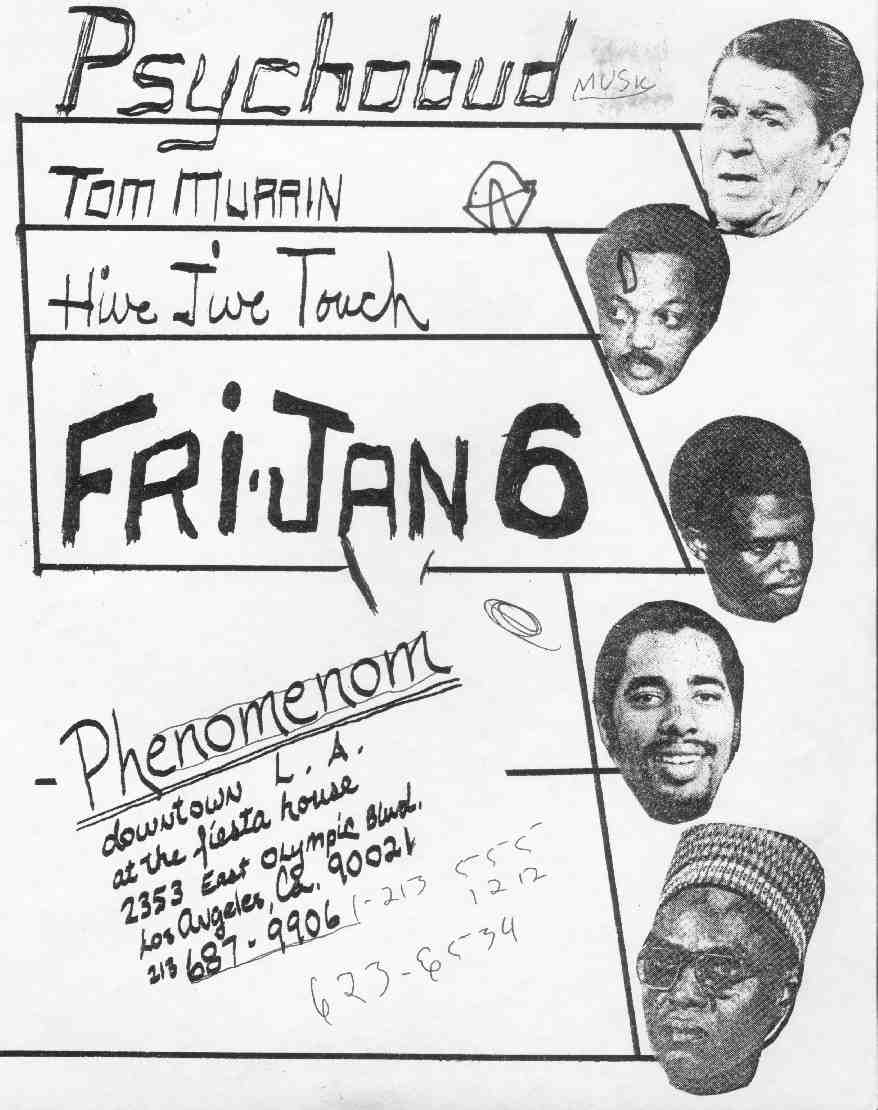 Psychobud
MUSIC
TOM MURRIN
A
Hive Jive Touch
FRI·JAN 6
- Phenomenom
downtown L.A.
at the fiesta house
2353 East Olympic Blvd.
Los Angeles, Ca. 90021
213 687-9906
1-213 555
1212
623-6534